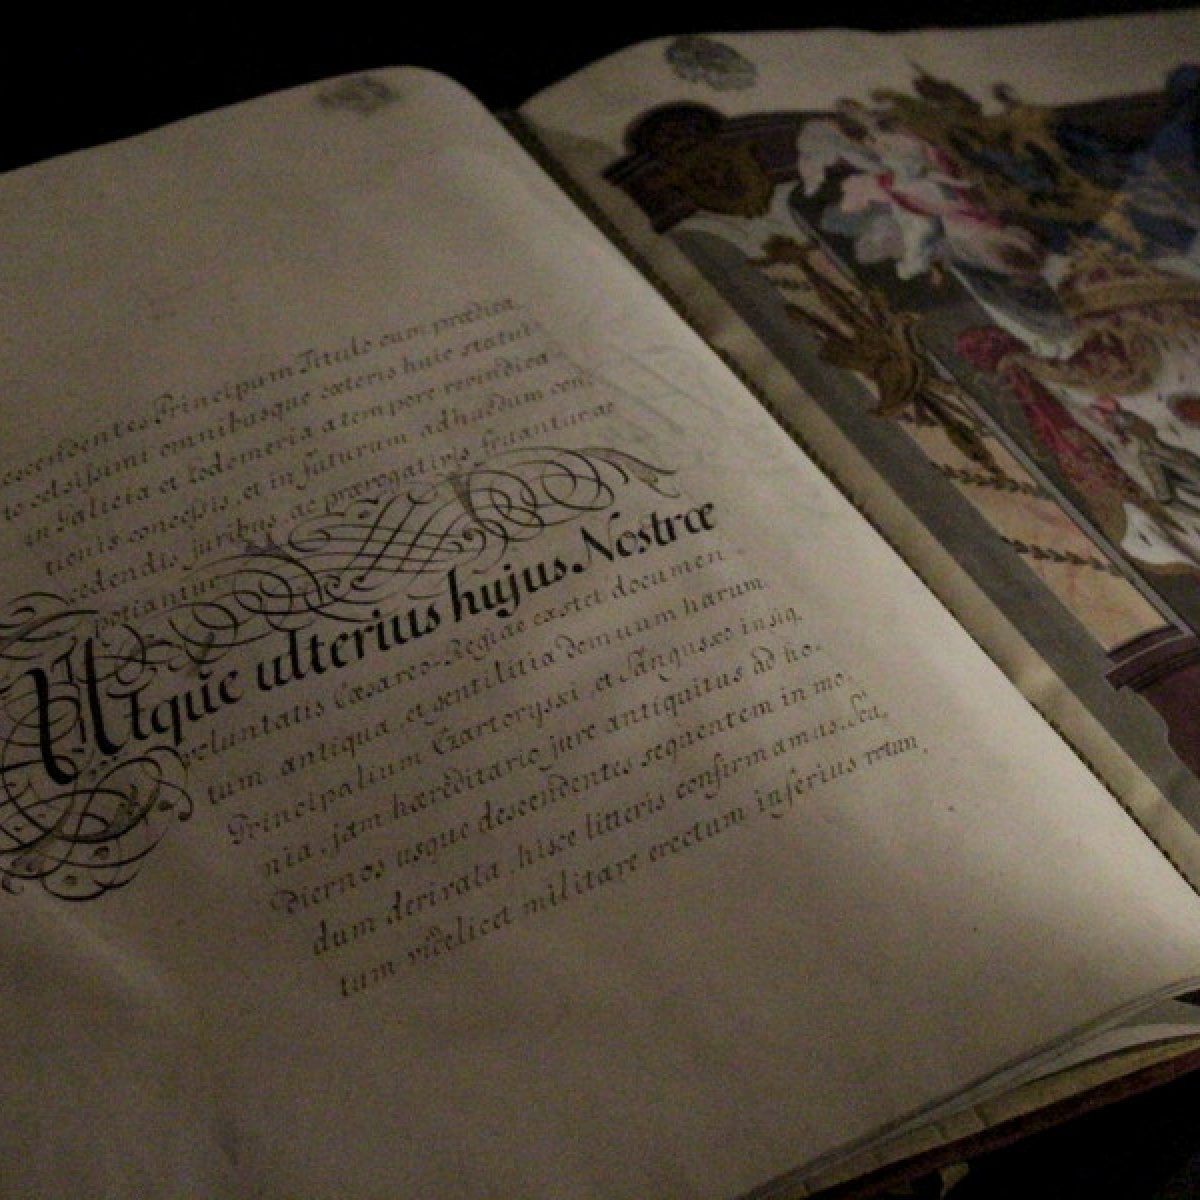 descendentes Principum Titulo cum prædica
to celsissimi omnibusque cæteris huic statui
in Galicia et Lodomeria a tempore revindica
tionis concessis, et in futurum adhucdum con
cedendis juribus, ac prærogativis fruantur ac
potiantur
Utque ulterius hujus Nostræ
voluntatis Cæsareo-Regiae exstet documen
tum antiqua, et gentilitia domuum harum
Principalium Czartoryski, et Sangusko insig
nia, jam hæreditario jure antiquitus ad ho-
diernos usque descendentes sequentem in mo-
dum derivata, hisce litteris confirmamus. Scu
tum videlicet militare erectum inferius